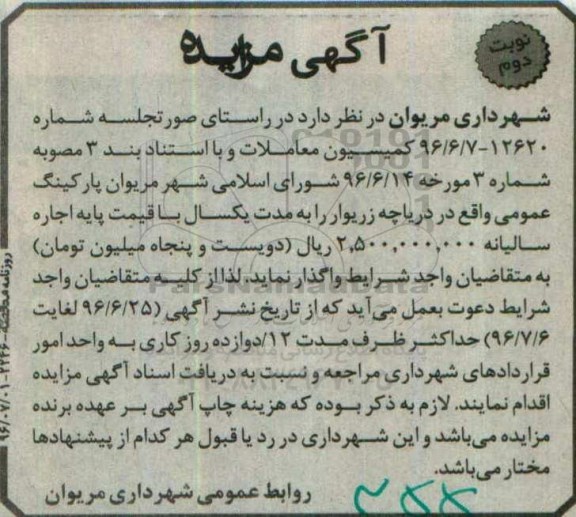 نوبت
دوم
آگهی مزایده
شهرداری مریوان در نظر دارد در راستای صورتجلسه شماره
۹۶/۶/۷-۱۲۶۲۰ کمیسیون معاملات و با استناد بند ۳ مصوبه
شماره ۳ مورخه ۹۶/۶/۱۴ شورای اسلامی شهر مریوان پارکینگ
عمومی واقع در دریاچه زریوار را به مدت یکسال با قیمت پایه اجاره
سالیانه ۲,۵۰۰,۰۰۰,۰۰۰ ریال (دویست و پنجاه میلیون تومان)
به متقاضیان واجد شرایط واگذار نماید. لذا از کلیه متقاضیان واجد
شرایط دعوت بعمل می‌آید که از تاریخ نشر آگهی (۹۶/۶/۲۵ لغایت
۹۶/۷/۶) حداکثر ظرف مدت ۱۲/دوازده روز کاری به واحد امور
قراردادهای شهرداری مراجعه و نسبت به دریافت اسناد آگهی مزایده
اقدام نمایند. لازم به ذکر بوده که هزینه چاپ آگهی بر عهده برنده
مزایده می‌باشد و این شهرداری در رد یا قبول هر کدام از پیشنهادها
مختار می‌باشد.
روابط عمومی شهرداری مریوان
ParsNamadData